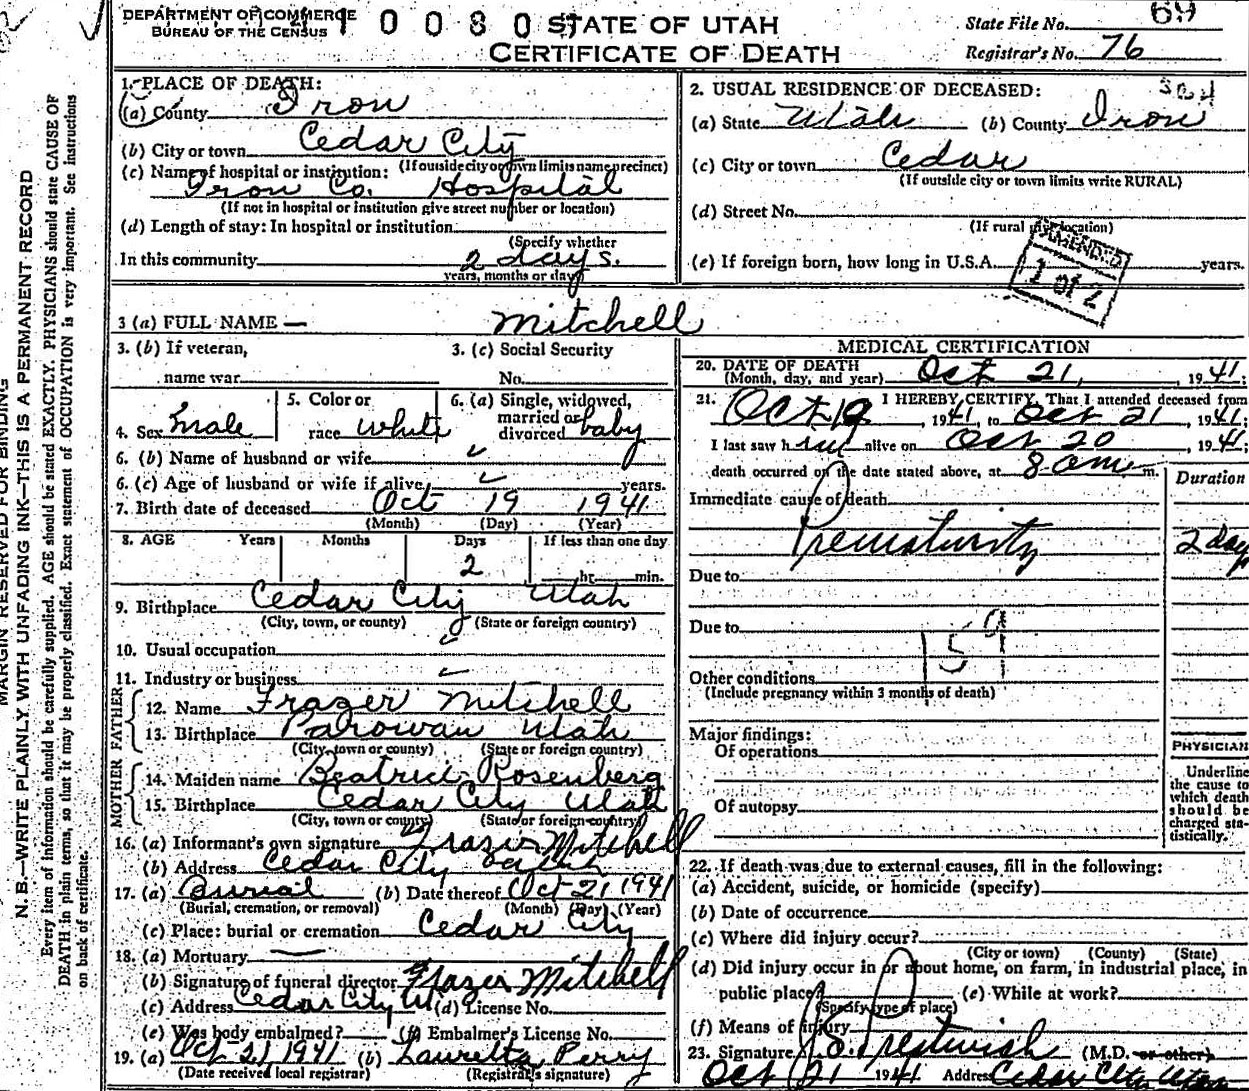 DEPARTMENT OF COMMERCE
BUREAU OF THE CENSUS
STATE OF UTAH
CERTIFICATE OF DEATH
State File No. 69
Registrar's No. 76
1. PLACE OF DEATH:
(a) County Iron
(b) City or town Cedar City
(If outside city or town limits name precinct)
(c) Name of hospital or institution:
Iron Co. Hospital
(If not in hospital or institution give street number or location)
(d) Length of stay: In hospital or institution
(Specify whether
In this community 2 days.
years, months or days)
2. USUAL RESIDENCE OF DECEASED:
(a) State Utah (b) County Iron
(c) City or town Cedar
(If outside city or town limits write RURAL)
(d) Street No.
(If rural give location)
(e) If foreign born, how long in U.S.A. years.
AMENDED
1 of 2
3 (a) FULL NAME — Mitchell
3. (b) If veteran,
name war
3. (c) Social Security
No.
4. Sex male
5. Color or
race white
6. (a) Single, widowed,
married or
divorced baby
6. (b) Name of husband or wife
6. (c) Age of husband or wife if alive, years.
7. Birth date of deceased Oct 19 1941
(Month) (Day) (Year)
8. AGE Years Months Days If less than one day
2 hr. min.
9. Birthplace Cedar City Utah
(City, town, or county) (State or foreign country)
10. Usual occupation
11. Industry or business
FATHER
12. Name Frazer Mitchell
13. Birthplace Parowan Utah
(City, town or county) (State or foreign country)
MOTHER
14. Maiden name Beatrice Rosenberg
15. Birthplace Cedar City Utah
(City, town or county) (State or foreign country)
16. (a) Informant's own signature Frazer Mitchell
(b) Address Cedar City
17. (a) Burial (b) Date thereof Oct 21 1941
(Burial, cremation, or removal) (Month) (Day) (Year)
(c) Place: burial or cremation Cedar City
18. (a) Mortuary —
(b) Signature of funeral director Frazer Mitchell
(c) Address Cedar City Ut (d) License No.
(e) Was body embalmed? (f) Embalmer's License No.
19. (a) Oct 21 1941 (b) Lauretta Perry
(Date received local registrar) (Registrar's signature)
MEDICAL CERTIFICATION
20. DATE OF DEATH
(Month, day, and year) Oct 21, 1941;
21. I HEREBY CERTIFY, That I attended deceased from
Oct 19, 1941, to Oct 21, 1941;
I last saw him alive on Oct 20 1941;
death occurred on the date stated above, at 8 am m.
Duration
Immediate cause of death
Prematurity 2 day
Due to
Due to
159
Other conditions
(Include pregnancy within 3 months of death)
Major findings:
Of operations
Of autopsy
PHYSICIAN
Underline
the cause to
which death
should be
charged sta-
tistically.
22. If death was due to external causes, fill in the following:
(a) Accident, suicide, or homicide (specify)
(b) Date of occurrence
(c) Where did injury occur?
(City or town) (County) (State)
(d) Did injury occur in or about home, on farm, in industrial place, in
public place?
(Specify type of place)
(e) While at work?
(f) Means of injury
23. Signature Prestwich (M.D. or other)
Oct 21 1941 Address Cedar City Utah
MARGIN RESERVED FOR BINDING
N. B.—WRITE PLAINLY WITH UNFADING INK—THIS IS A PERMANENT RECORD
Every item of information should be carefully supplied. AGE should be stated EXACTLY. PHYSICIANS should state CAUSE OF
DEATH in plain terms, so that it may be properly classified. Exact statement of OCCUPATION is very important. See instructions
on back of certificate.